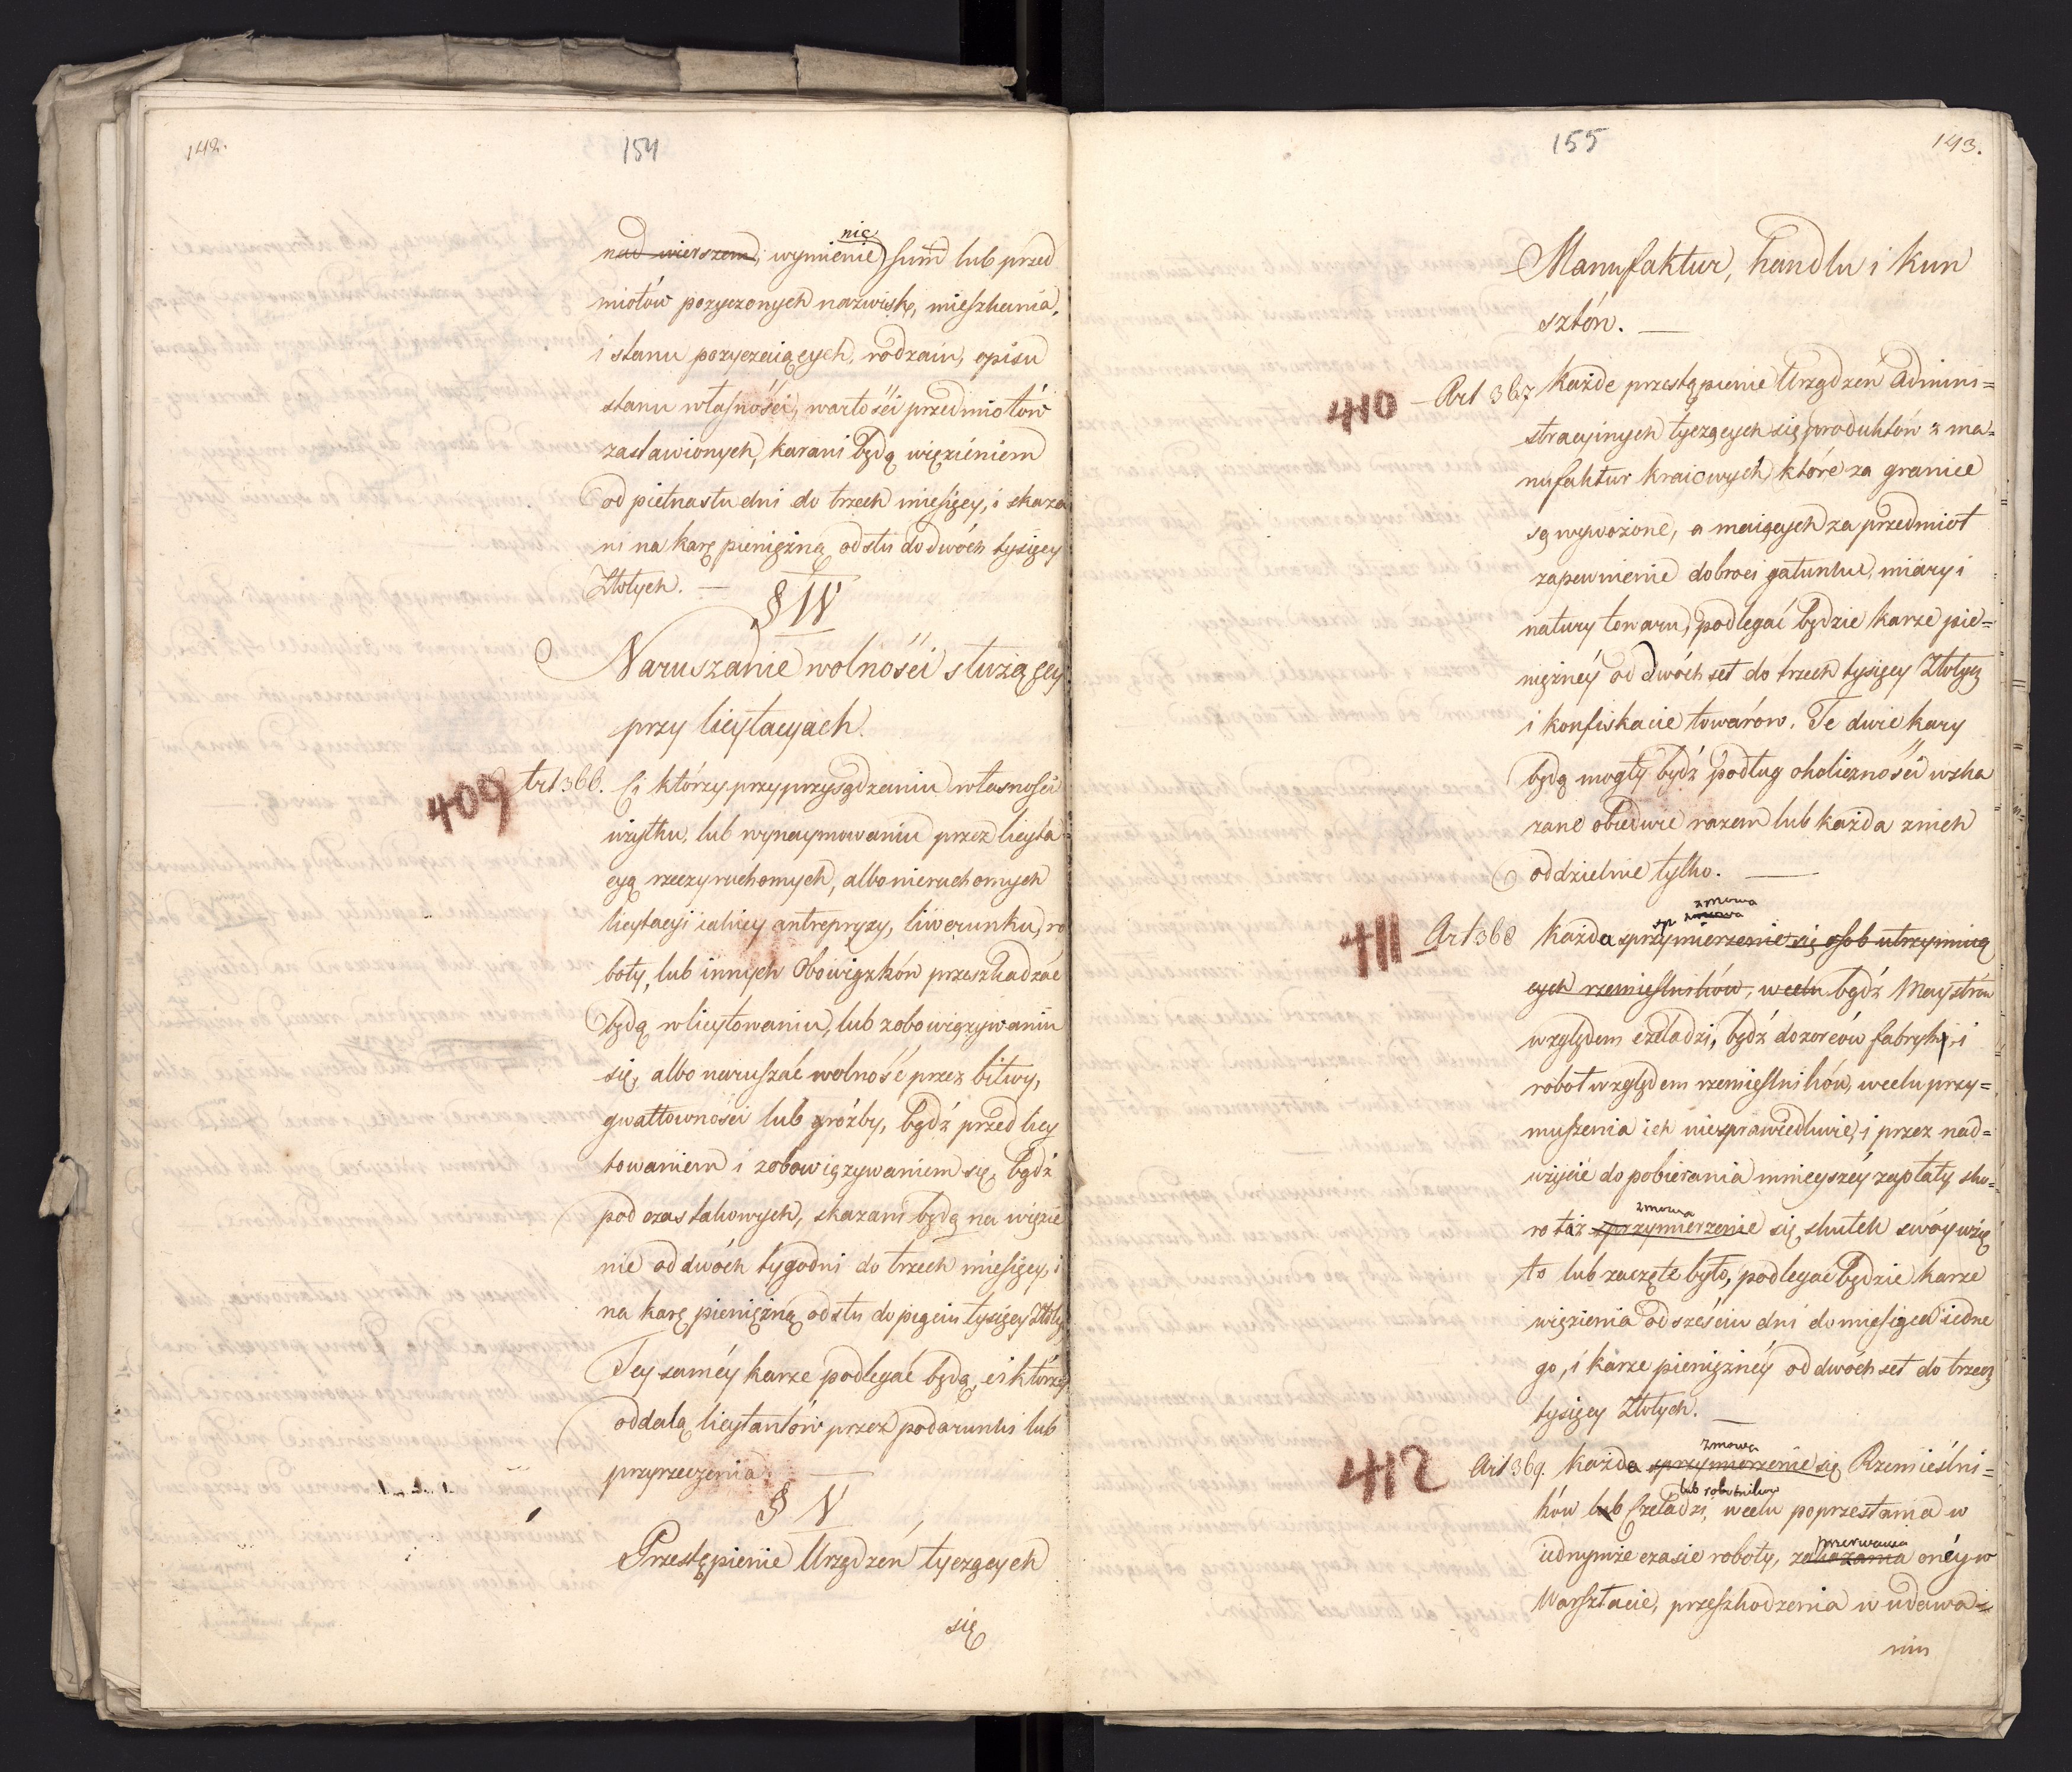 142.
154
nie
nad wierszem, wymienie sum lub przed
miotów pozyczonych nazwiska, mieszkania,
i stanu pozyczaiących, rodzaiu, opisu
stanu własności, wartości przedmiotów
zastawionych, karani będą więzieniem
od piętnastu dni do trzech miesięcy, i skaza
ni na karę pieniężną od stu do dwóch tysięcy
Złotych. —
§ IV
Naruszanie wolności służącey
przy licytacyach.
409 Art 366. Ci którzy przy przysądzaniu własności
użytku, lub wynaymowaniu przez licyta
cyą rzeczy ruchomych, albo nieruchomych
licytacyi iakiey antrepryzy, liwerunku, ro
boty, lub innych Obowiązków przeszkadzać
będą w licytowaniu, lub zobowiązywaniu
się, albo naruszać wolność przez bitwy,
gwałtowności lub groźby, bądź przed licy
towaniem i zobowiązywaniem się, bądź
pod czas takowych, skazani będą na więzie
nie od dwóch tygodni do trzech miesięcy, i
na karę pieniężną od stu do pięciu tysięcy Złoty
Tey saméy karze podlegać będą, ci którzy
oddalą licytantów przez podarunki lub
przyrzeczenia. —
§ V
Przestępienie Urządzeń tyczących
się
155
143.
Manufaktur, handlu i kun
sztów. —
410 Art 367 Każde przestępienie Urządzeń Admini=
stracyinych tyczących się produktów z ma=
nufaktur kraiowych, które za granice
są wywożone, a maiących za przedmiot
zapewnienie dobroci gatunku, miary i
natury towaru, podlegać będzie karze pie=
niężnéy od dwóch set do trzech tysięcy Złotych
i konfiskacie towarów. Te dwie kary
będą mogły bydź podług okoliczności wska
zane obiedwie razem lub każda z nich
oddzielnie tylko. —
zmowa
zmowa
411 Art 368 Każda sprzymierzenie się osob utrzymuią
cych rzemieślników, w celu bądź Maystrów
względem czeladzi, bądź dozorców fabryk, i
robot względem rzemieślników, w celu przy=
muszenia ich niesprawiedliwie, i przez nad=
użycie do pobierania mnieyszéy zapłaty sko=
zmowa
ro taż sprzymierzenie się skutek swóy wzię
to lub zaczęte było, podlegać będzie karze
więzienia od sześciu dni do miesiąca iedne
go, i karze pieniężnéy od dwóch set do trzech
tysięcy Złotych. —
zmowa
412 Art 369. Każda sprzymierzenie się Rzemieślni=
lub robotników
ków lub Czeladzi, w celu poprzestania w
przerwania
iednymże czasie roboty, zakazania onéy w
Warsztacie, przeszkodzenia w udawa=
niu